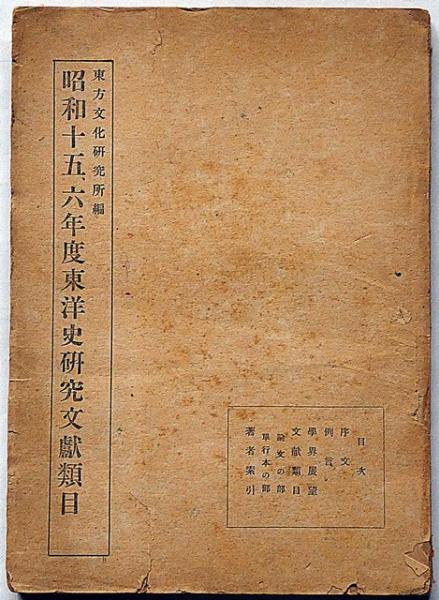 東方文化研究所編
昭和十五、六年度東洋史研究文獻類目
目次
序文
例言
學界展望
文獻類目
論文の部
單行本の部
著者索引